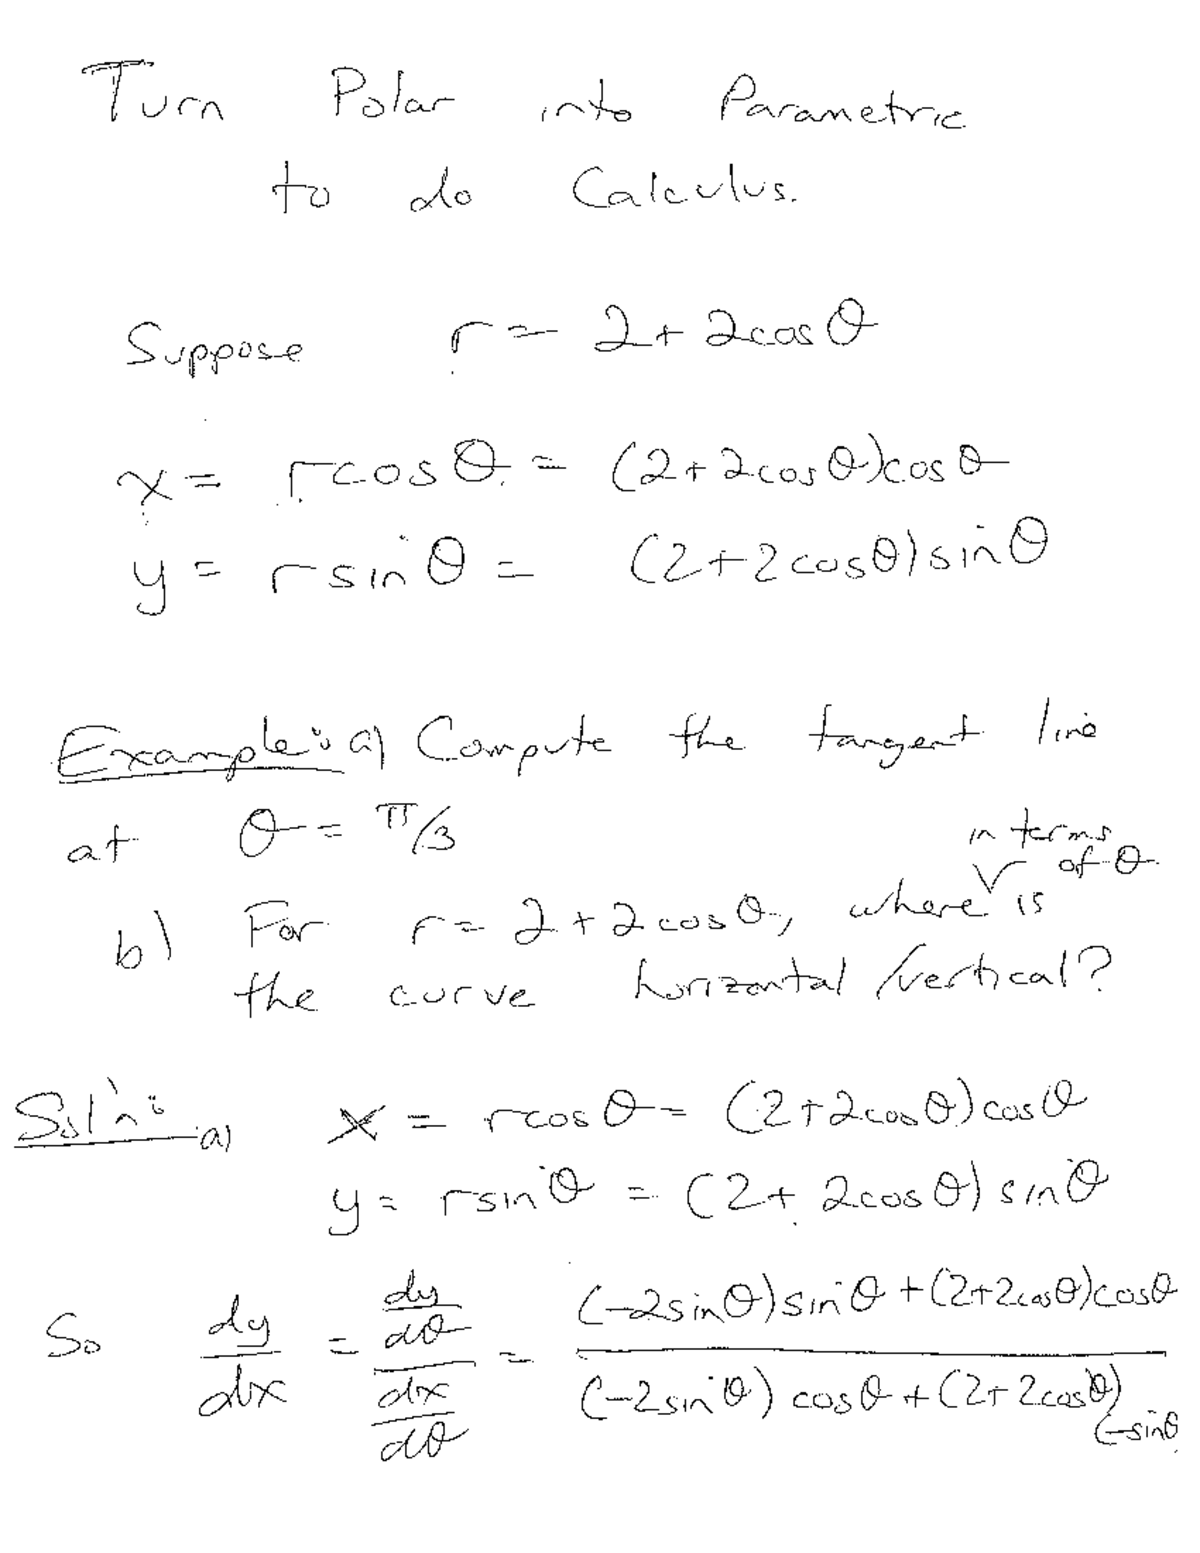 Turn Polar into Parametric
to do Calculus.
Suppose r = 2 + 2cosθ
x = rcosθ = (2+2cosθ)cosθ
y = rsinθ = (2+2cosθ)sinθ
Example: a) Compute the tangent line
at θ = π/3
in terms
of θ
b) For r = 2 + 2cosθ, where ∨ is
the curve horizontal/vertical?
Sol'n: a) x = rcosθ = (2+2cosθ)cosθ
y = rsinθ = (2+2cosθ)sinθ
So dy/dx = (dy/dθ)/(dx/dθ) = ((-2sinθ)sinθ+(2+2cosθ)cosθ)/((-2sinθ)cosθ+(2+2cosθ)(-sinθ